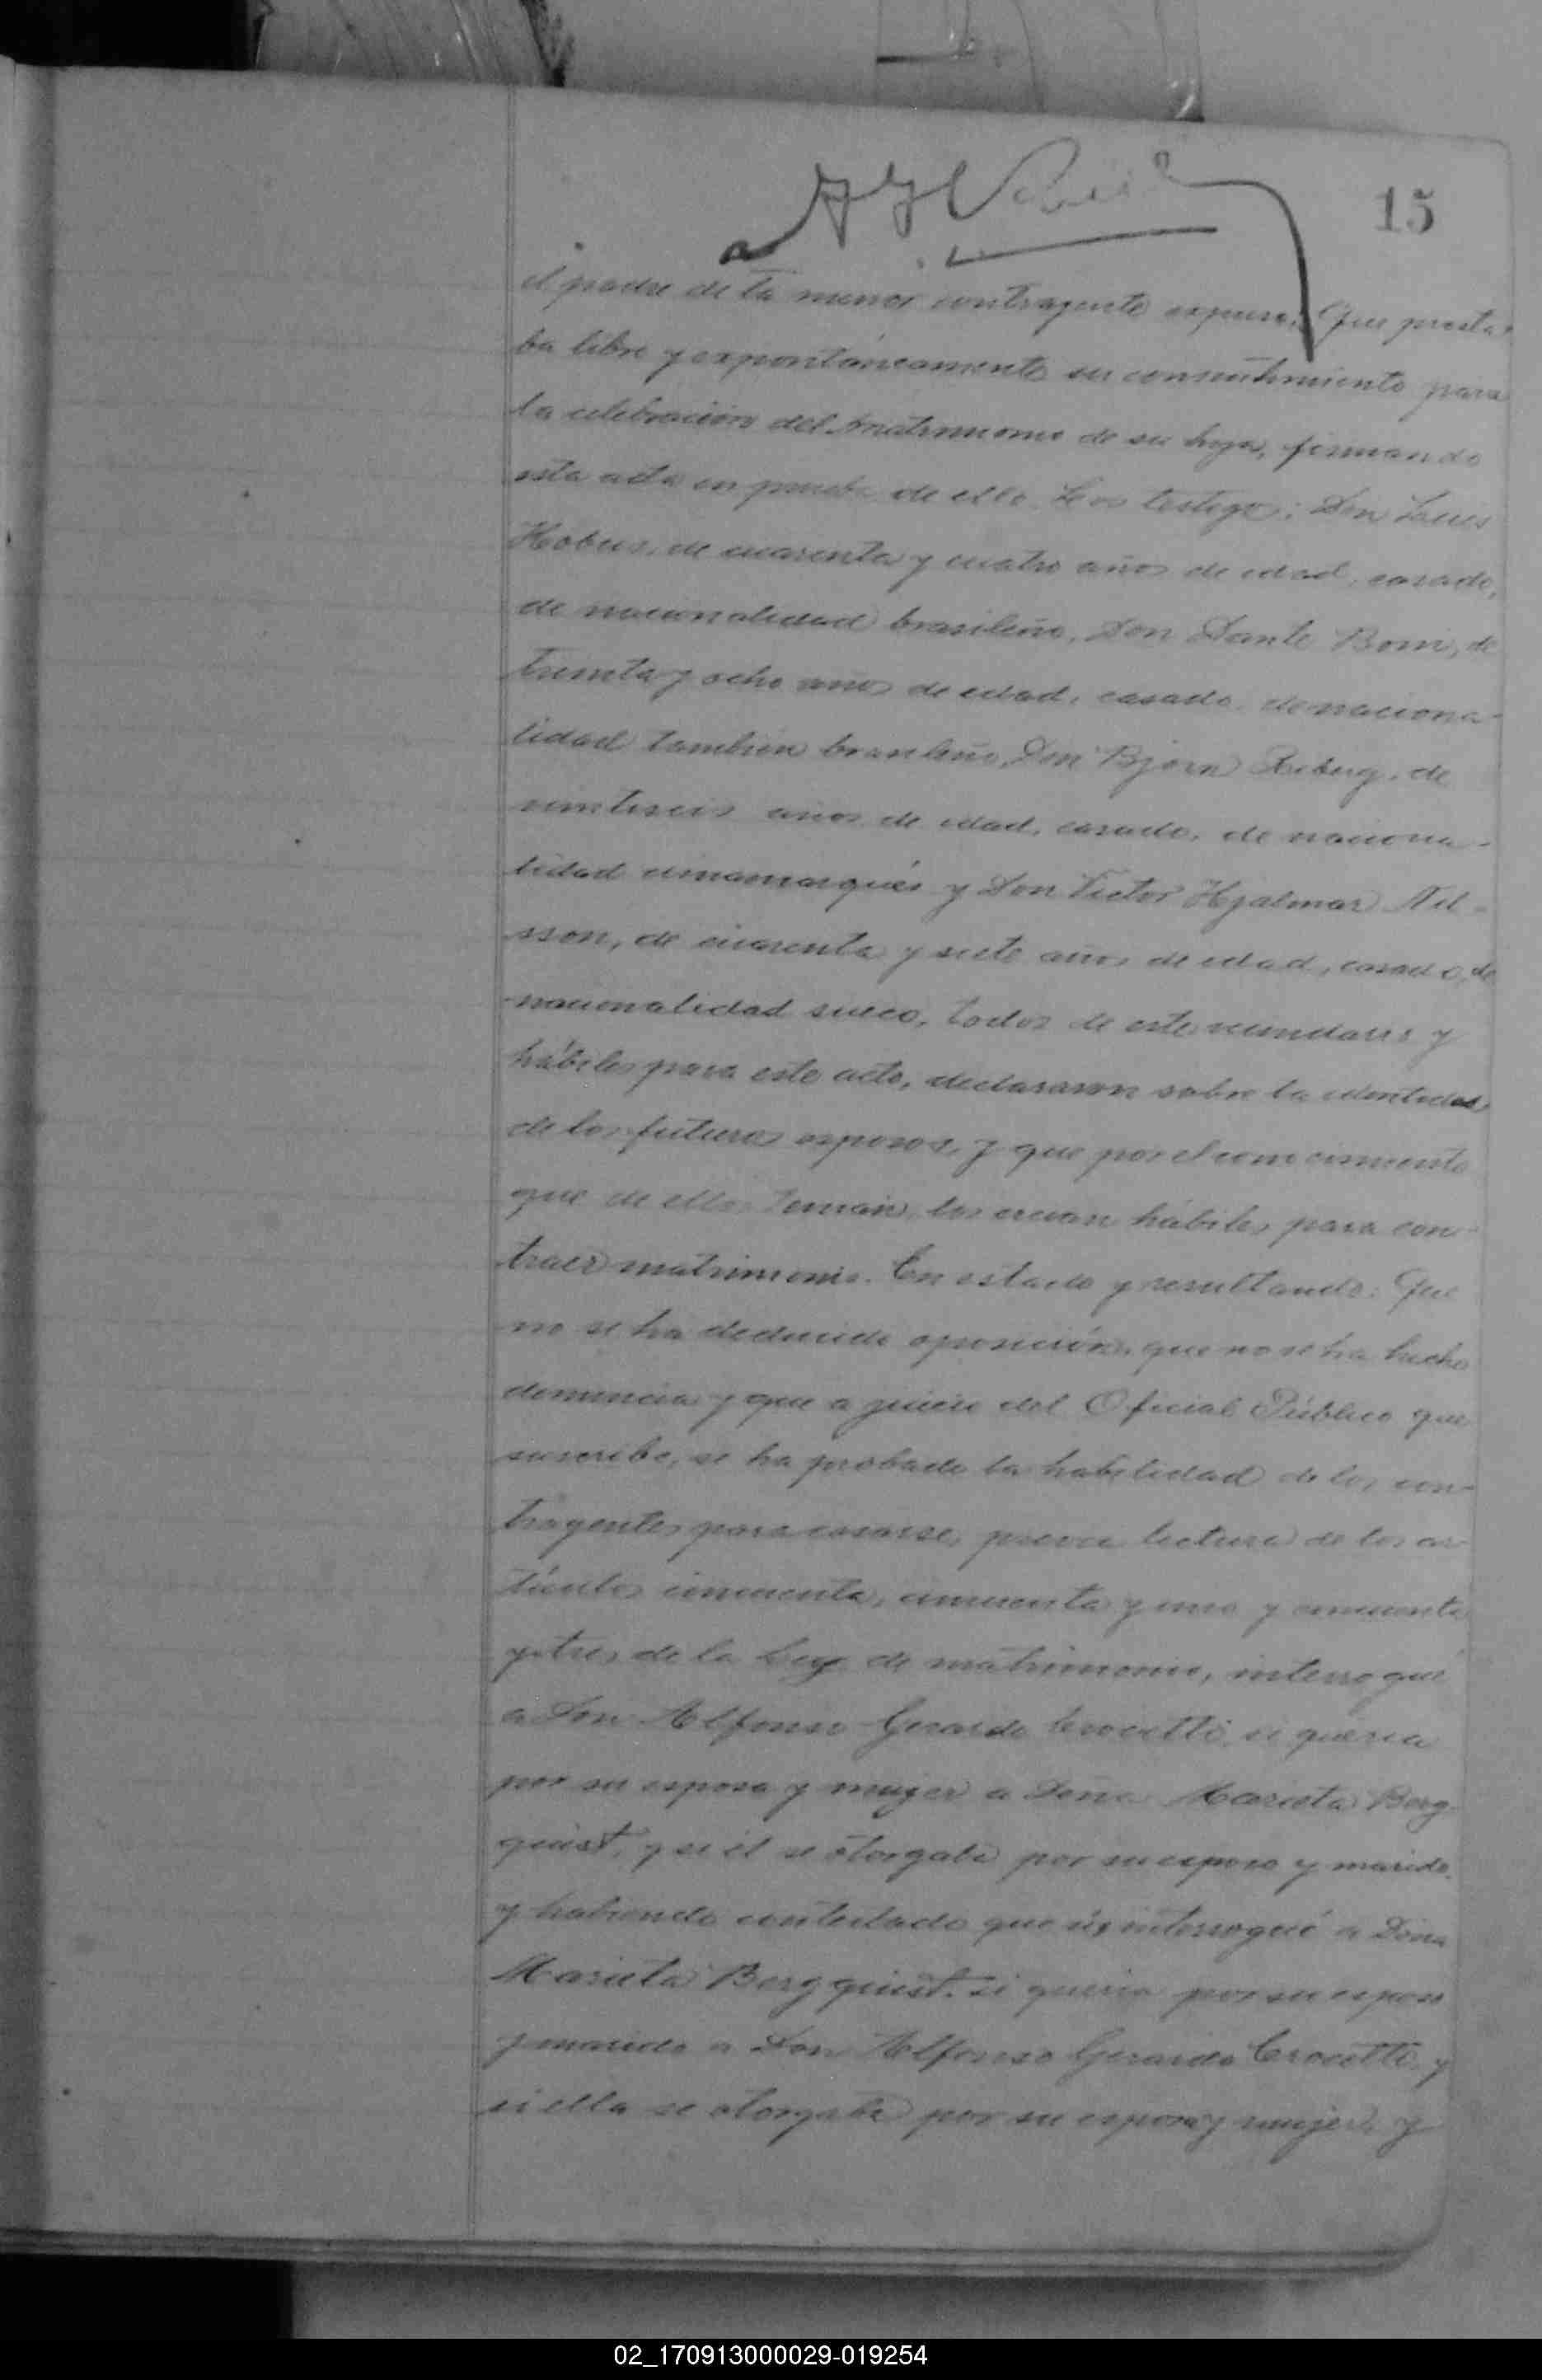 15
el padre de la menor contrayente expuso: Que presta-
ba libre y expontáneamente su consentimiento para
la celebración del matrimonio de su hija, firmando
esta acta en prueba de ello. Los testigos: Don Luis
Hobus, de cuarenta y cuatro años de edad, casado,
de nacionalidad brasileño, Don Dante Boni, de
treinta y ocho años de edad, casado, de naciona-
lidad tambien brasileño, Don Björn de
veintiseis años de edad, casado, de naciona-
lidad dinamarqués y Don Victor Hjalmar Nil-
sson, de cuarenta y siete años de edad, casado, de
nacionalidad sueco, todos de este vecindario y
hábiles para este acto, declararon sobre la identidad
de los futuros esposos, y que por el conocimiento
que de ellos tenian, los creian hábiles para con-
traer matrimonio. En estado y resultando: Que
no se ha deducido oposición, que no se ha hecho
denuncia y que a juicio del Oficial Público que
suscribe, se ha probado la habilidad de los con-
trayentes para casarse, previa lectura de los ar-
tículos cincuenta, cincuenta y uno y cincuenta
y tres de la Ley de matrimonio, interrogué
a Don Alfonso Gerardo Crocetti, si queria
por su esposa y mujer a Doña Marieta Berg-
quist, y si él se otorgaba por su esposo y marido,
y habiendo contestado que si, interrogué a Doña
Marieta Bergquist, si queria por su esposo
y marido a Don Alfonso Gerardo Crocetti, y
si ella se otorgaba por su esposa y mujer, y
02_170913000029-019254